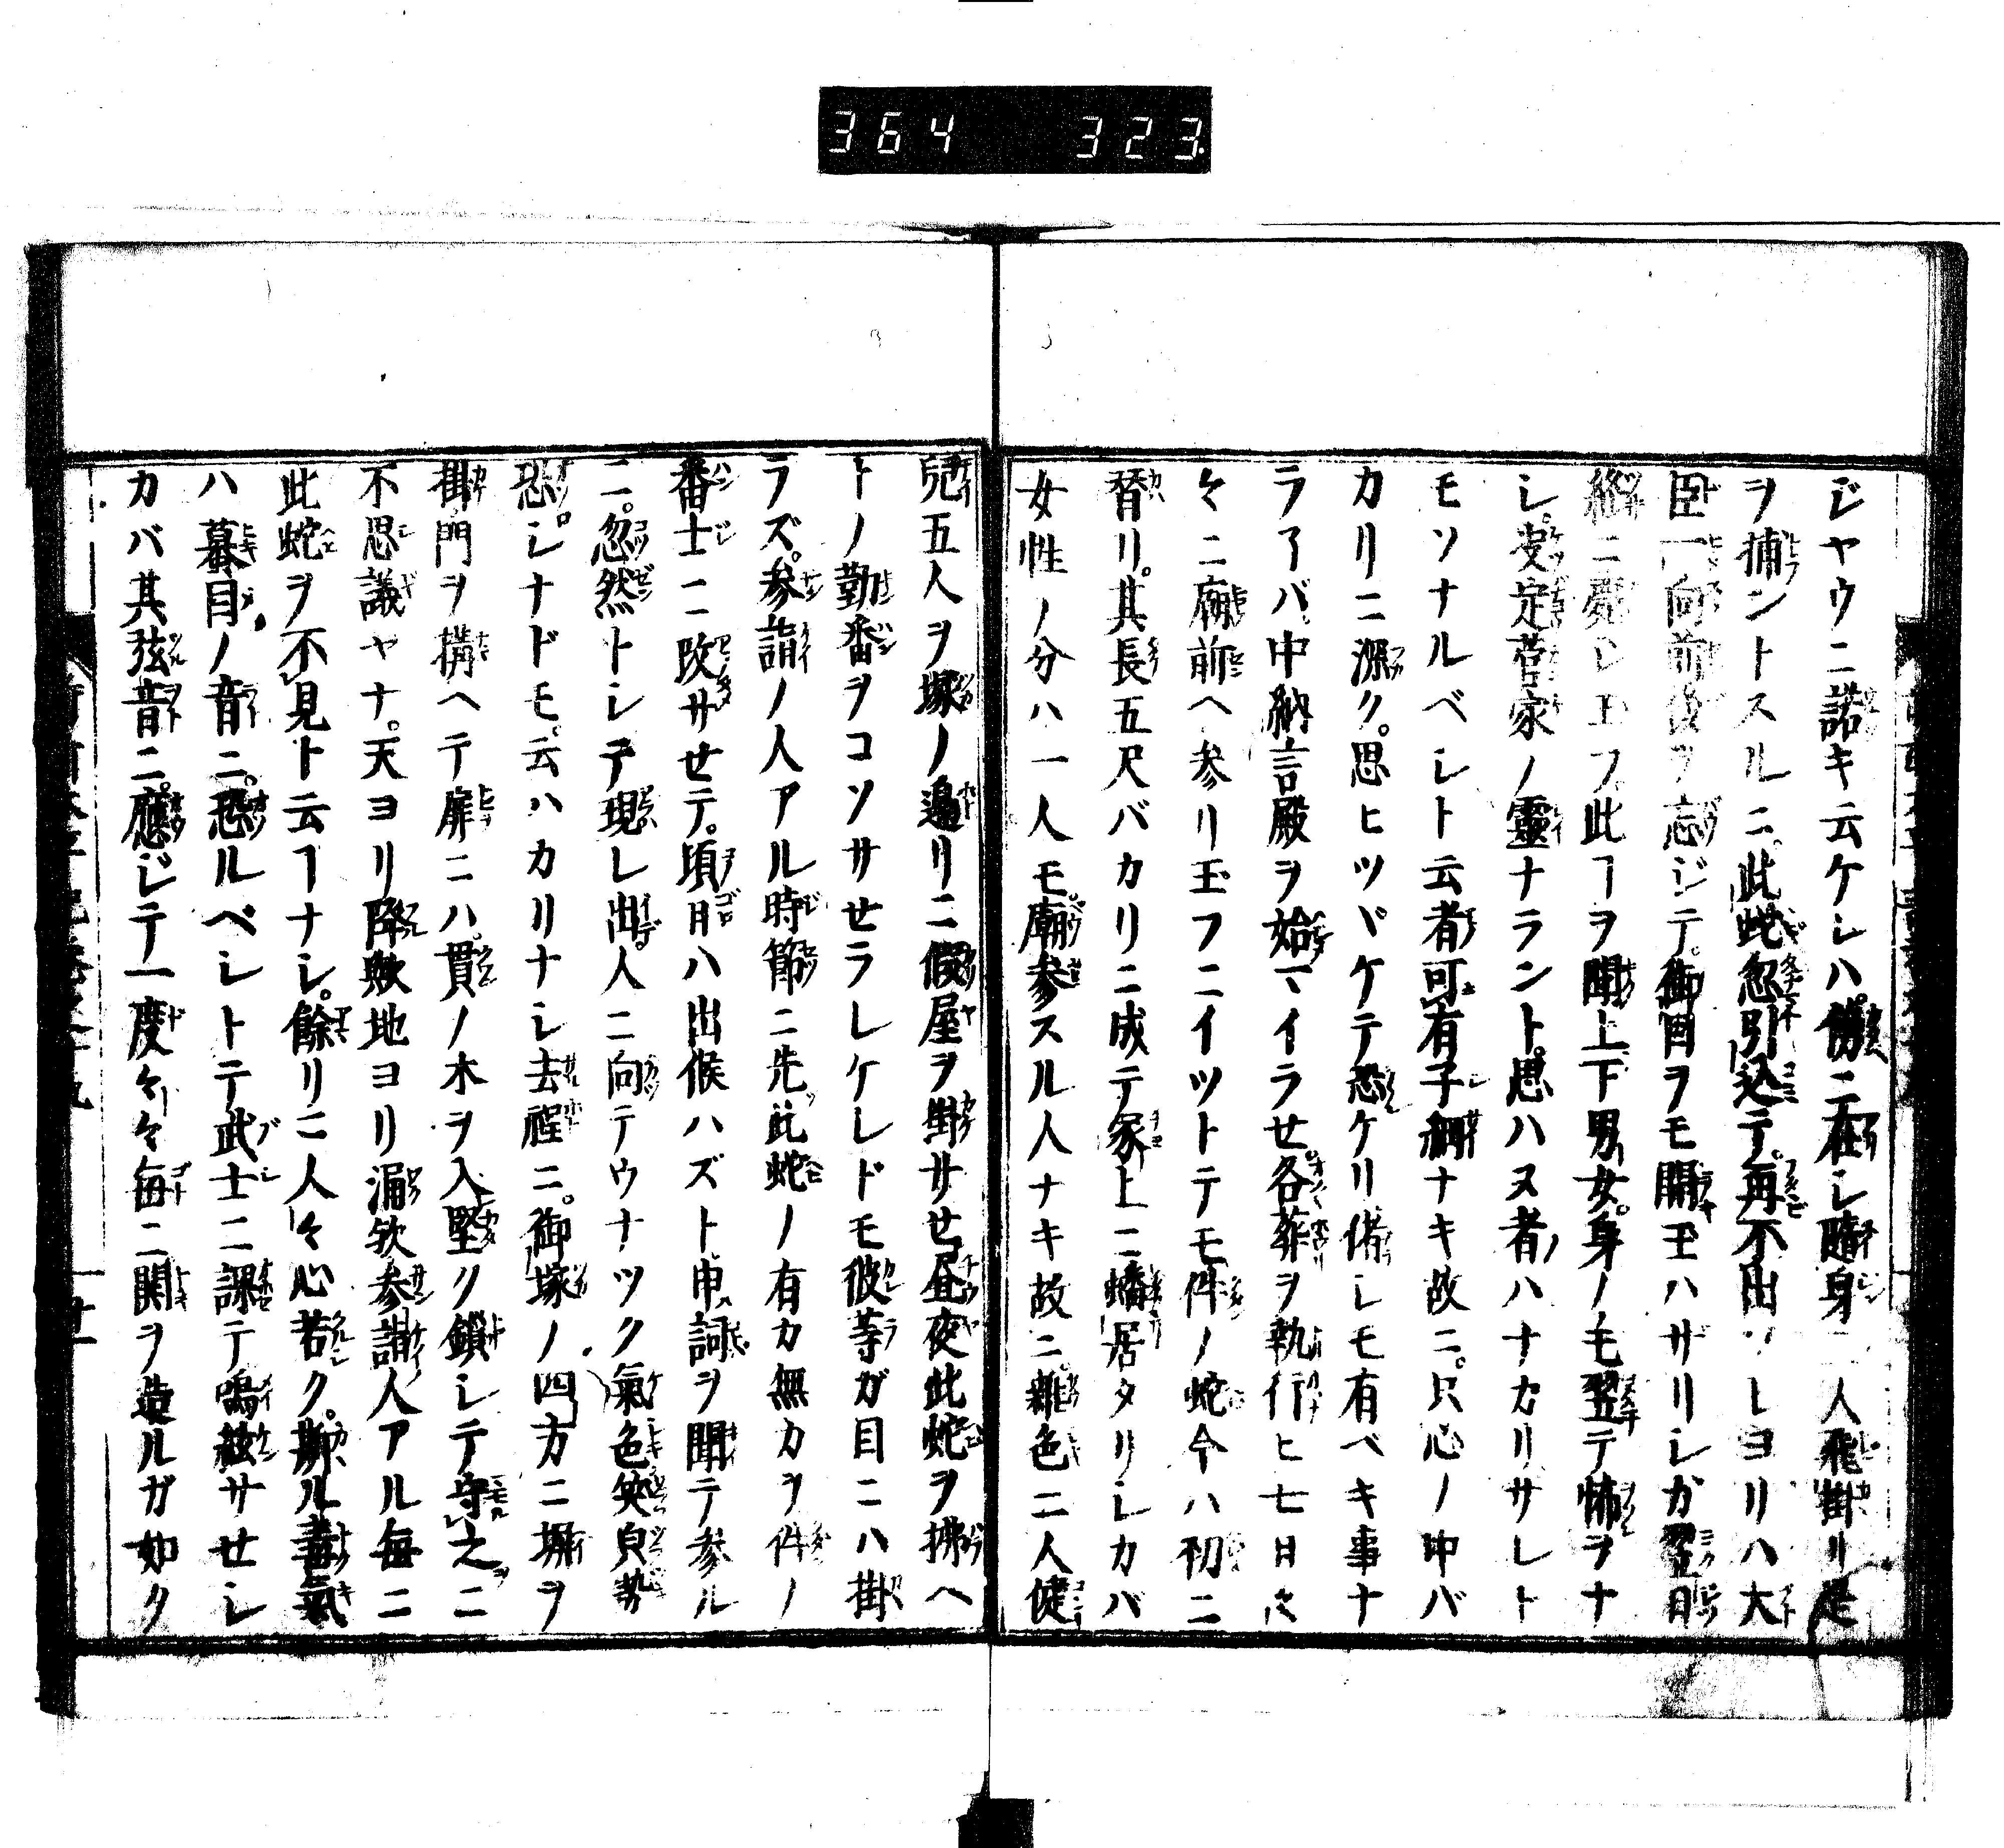 364 323
ジヤウニ諾キ云ケレハ。傍ニ在シ隨身一人飛掛リ是
ヲ捕ントスルニ。此蛇忽引込テ。再不出ソレヨリハ大
臣一向前後ヲ忘ジテ。御目ヲモ開玉ハザリシガ翌日
終ニ薨シ玉フ此ヿヲ聞上下男女。身ノ毛竪テ怖ヲナ
シ。定菅家ノ靈ナラント。思ハヌ者ハナカリサレト
モソナルベシト云者可有子細ナキ故ニ。只心ノ中バ
カリニ深ク。思ヒツヾケテ恐ケリ偖シモ有ベキ事ナ
ラ子バ。中納言殿ヲ始マイラせ。各葬ヲ執行ヒ七日々
々ニ廟前ヘ参リ玉フニイツトテモ件ノ蛇今ハ初ニ
替リ。其長五尺バカリニ成テ冢上ニ蟠居タリシカバ
女性ノ分ハ一人モ。廟参スル人ナキ故ニ。雜色二人健
兒五人ヲ塚ノ邉リニ假屋ヲ掛サせ昼夜此蛇ヲ拂ヘ
トノ勤番ヲコソサせラレケレドモ彼等ガ目ニハ掛
ラズ。参詣ノ人アル時節ニ先此蛇ノ有カ無カヲ件ノ
番士ニ改サせテ。頃日ハ出候ハズト申詞ヲ聞テ参ル
ニ。忽然トシテ現レ出。人ニ向テウナツク氣色笑皃勢
恐。シナドモ。云ハカリナシ去程ニ。御塚ノ四方ニ塀ヲ
掛門ヲ搆ヘテ扉ニハ。貫ノ木ヲ入堅ク鎖シテ守之ニ
不思議ヤナ。天ヨリ降歟地ヨリ漏欤参謝人アル毎ニ
此蛇ヲ不見ト云ヿナシ。餘リニ人々心若ク。斯ル毒氣
ハ蟇目ノ音ニ。恐ルベシトテ武士ニ課テ鳴絃サせシ
カバ其弦音ニ。應ジテ一度々々毎ニ関ヲ造ルガ如ク